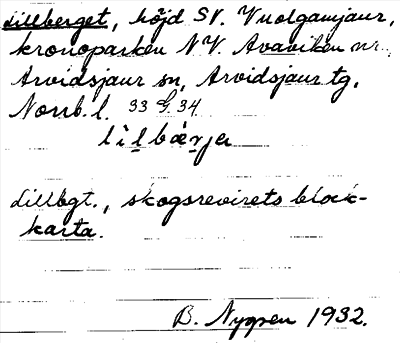 Lillberget, höjd SV. Vuolgamjaur,
kronoparken N.V. Avaviken nr.
Arvidsjaur sn, Arvidsjaur tg.
Norrb. l. 33 G. 34
lìlbæ̀rjǝ
Lillbgt., skogsrevirets block-
karta.
B. Nygren 1932.